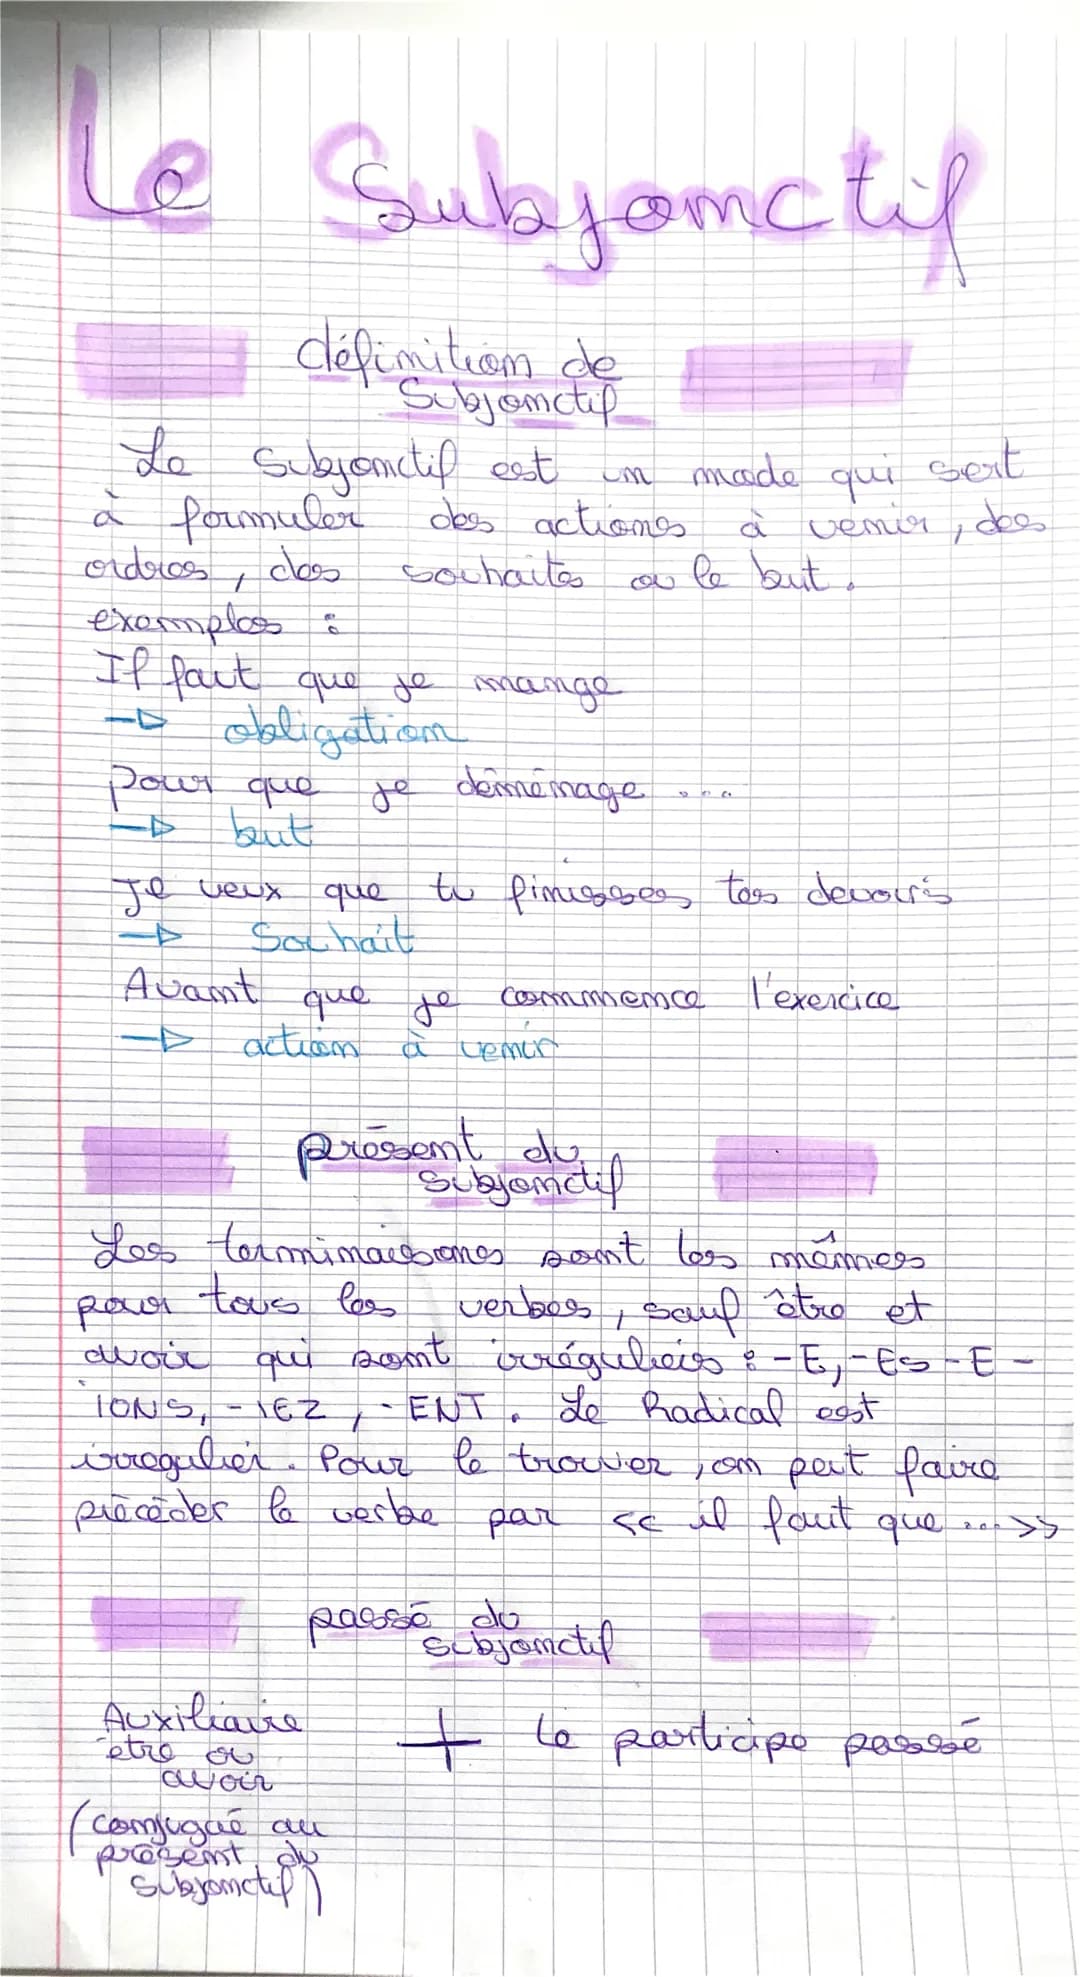 Le Subjonctif
définition de
Subjonctif
Le Subjonctif est un mode qui sert
à formuler des actions à venir, des
ordres, des souhaits ou le but.
exemples :
Il faut que je mange
→ obligation
Pour que je déménage ...
→ but
Je veux que tu finisses tes devoirs
→ Souhait
Avant que je commence l'exercice
→ action à venir
présent du
subjonctif
Les terminaisons sont les mêmes
pour tous les verbes, sauf être et
avoir qui sont irréguliers : -E, -ES -E -
IONS, -IEZ, -ENT. Le Radical est
irregulier. Pour le trouver, on peut faire
précéder le verbe par << il faut que ... >>
passé du
subjonctif
Auxiliaire
être ou
avoir
+ le participe passé
(conjugué au
présent du
subjonctif)